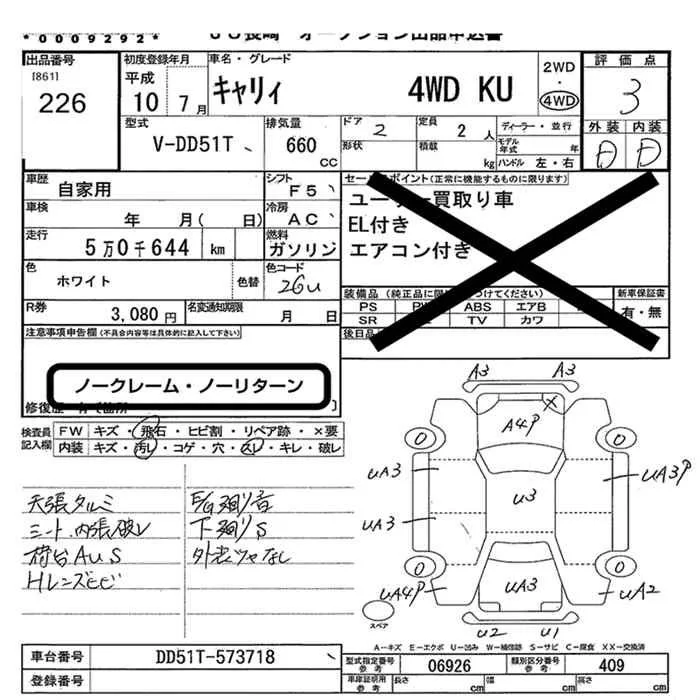 *00092922*
ＪＵ長崎 オークション出品申込書
出品番号
[861]
226
初度登録年月
平成
10 年 7 月
車名・グレード
キャリィ 4WD KU
2WD
・
4WD
評価点
3
外装 内装
D D
型式
V-DD51T
排気量
660
CC
ドア 2
形状
定員 2 人
積載 kg
ディーラー・並行
モデル年式 年
ハンドル 左・右
車歴
自家用
シフト
F5
車検
年 月( 日)
冷房
AC
走行
5万0千644 km
燃料
ガソリン
色
ホワイト
色替
色コード
26U
R券
3,080 円
名変通知期限
月 日
セールスポイント(正常に機能するものに限ります)
ユーザー買取り車
EL付き
エアコン付き
装備品
PS ABS エアB
SR TV カワ
新車保証書
有・無
後日品
注意事項申告欄(不具合内容等は具体的に記入して下さい)
ノークレーム・ノーリターン
検査員
記入欄
FW キズ・飛石・ヒビ割・リペア跡・×要
内装 キズ・汚レ・コゲ・穴・スレ・キレ・破レ
天張タルミ
シート、内張破レ
荷台AUS
Hレンズヒビ
E/G廻り音
下廻りS
外装ツヤなし
A3 A3
A4P
UA3
UA3
UA3P
U3
UA3
UA4P
UA2
U2 U1
スペア
A－キズ E－エクボ U－凹み W－補修跡 S－サビ C－腐食 XX－交換済
車台番号
DD51T-573718
登録番号
型式指定番号
参考
06926
類別区分番号
参考
409
車庫証明用
参考
長さ cm
幅 cm
高さ cm